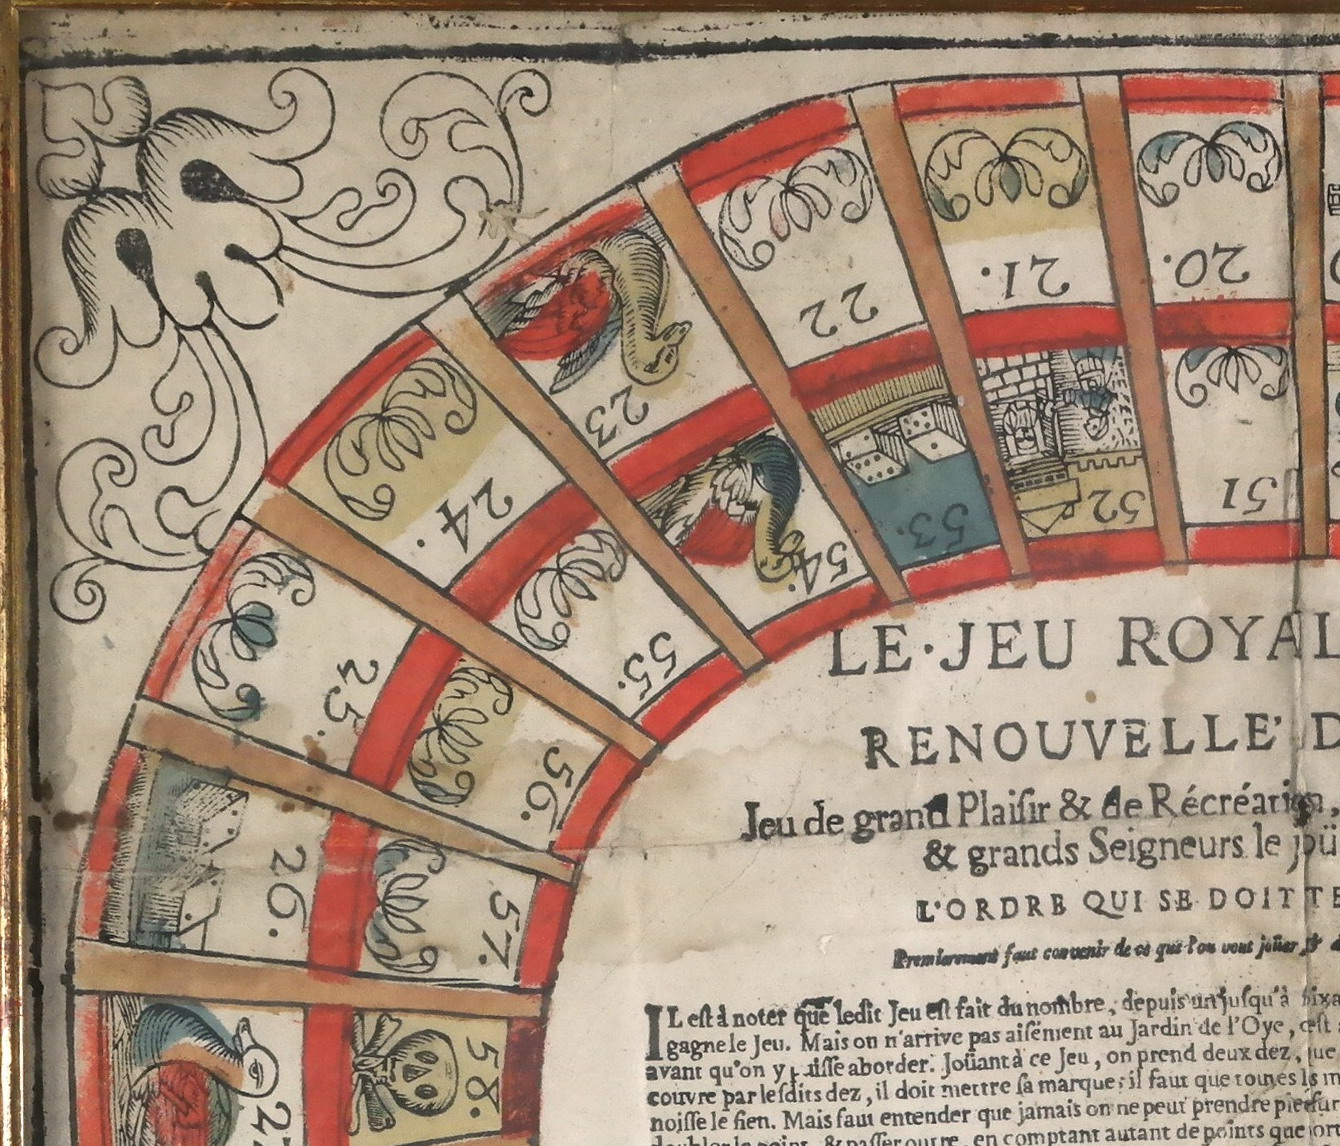 20.
21.
22
23
24.
25.
26.
51
52
53.
54.
55.
56.
57.
58.
LE·JEU ROYAL
RENOUVELLE' D
Jeu de grand Plaiſir & de Récréation,
& grands Seigneurs le joü
L'ORDRE QUI SE DOIT TE
Premierement faut convenir de ce que l'on veut joüer,
IL eſt à noter que ledit Jeu eſt fait du nombre, depuis un juſqu'à ſixa
gagne le Jeu. Mais on n'arrive pas aiſément au Jardin de l'Oye, c'eſt
avant qu'on y puiſſe aborder. Joüant à ce Jeu, on prend deux dez, que
couvre par leſdits dez, il doit mettre ſa marque; il faut que toutes
noiſſe le ſien. Mais faut entender que jamais on ne peut prendre
doubler le point, & paſſer outre, en comptant autant de points que